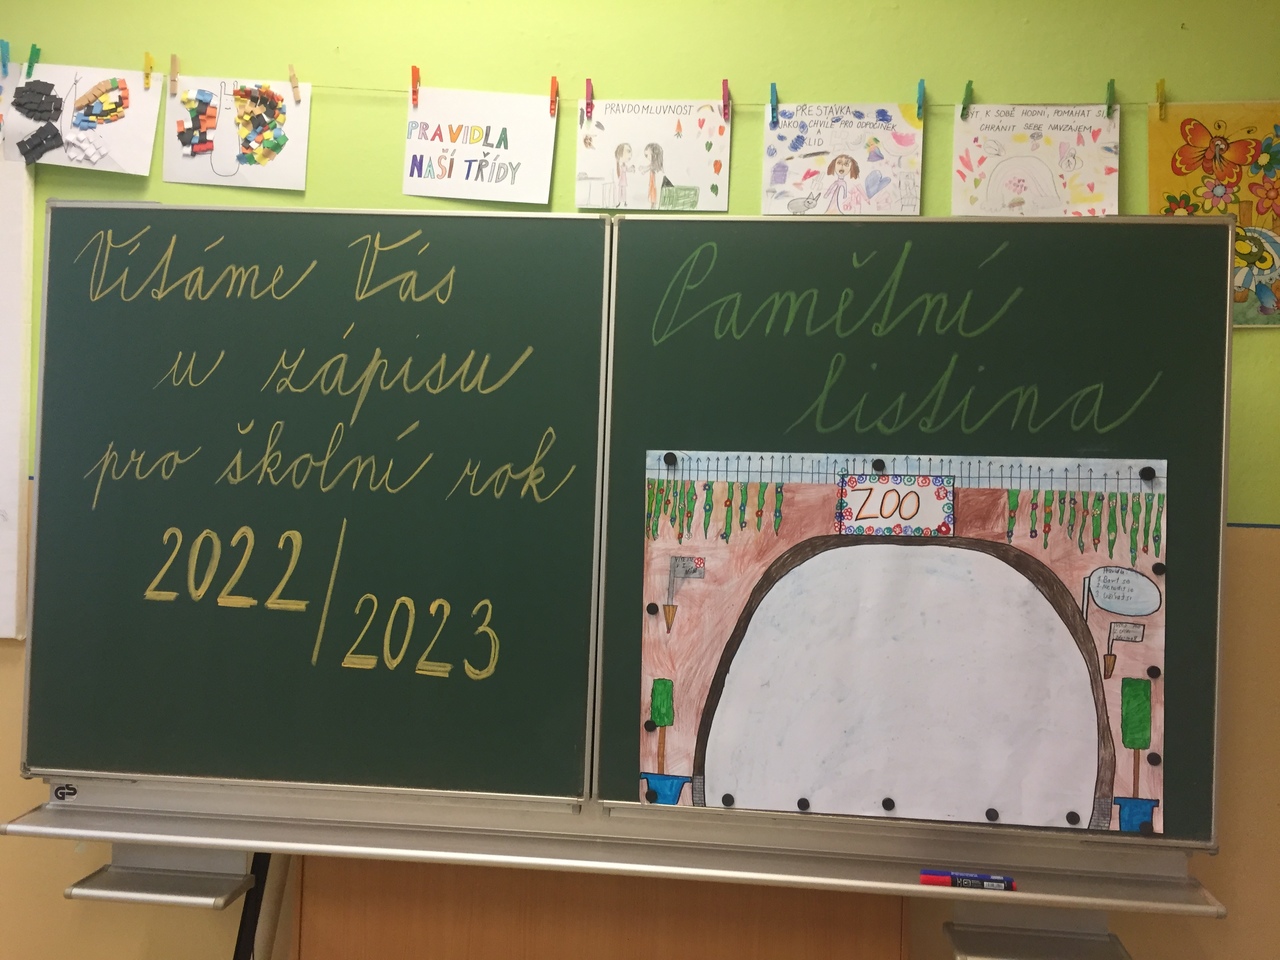 PRAVIDLA
NAŠÍ TŘÍDY
PRAVDOMLUVNOST
PŘESTÁVKA
JAKO CHVÍLE PRO ODPOČINEK
A
KLID
BÝT K SOBĚ HODNÍ, POMÁHAT SI,
CHRÁNIT SEBE NAVZÁJEM
Vítáme Vás
u zápisu
pro školní rok
2022/2023
Pamětní
listina
ZOO
GS